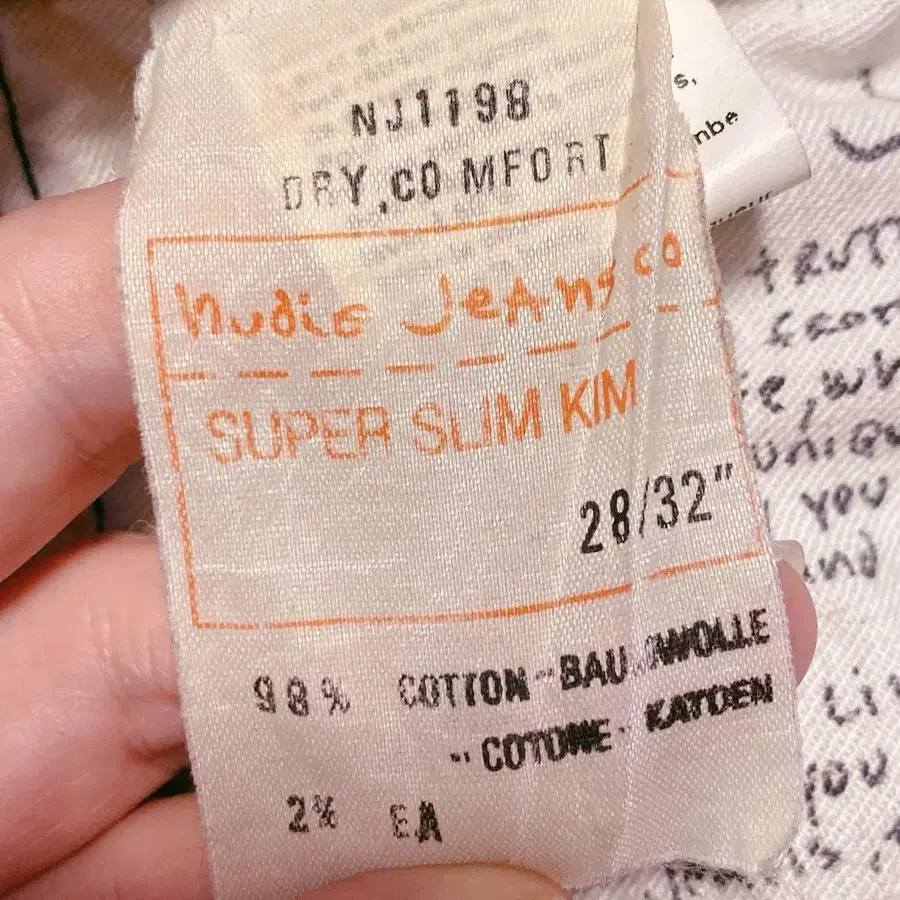 NJ1198
DRY,COMFORT
nudie Jeans co
SUPER SLIM KIM
28/32"
98% COTTON-BAUMWOLLE
-COTONE-KATOEN
2% EA
s,
mbe
TRUT
from
e, wh
uniqu
you
and
Li
you